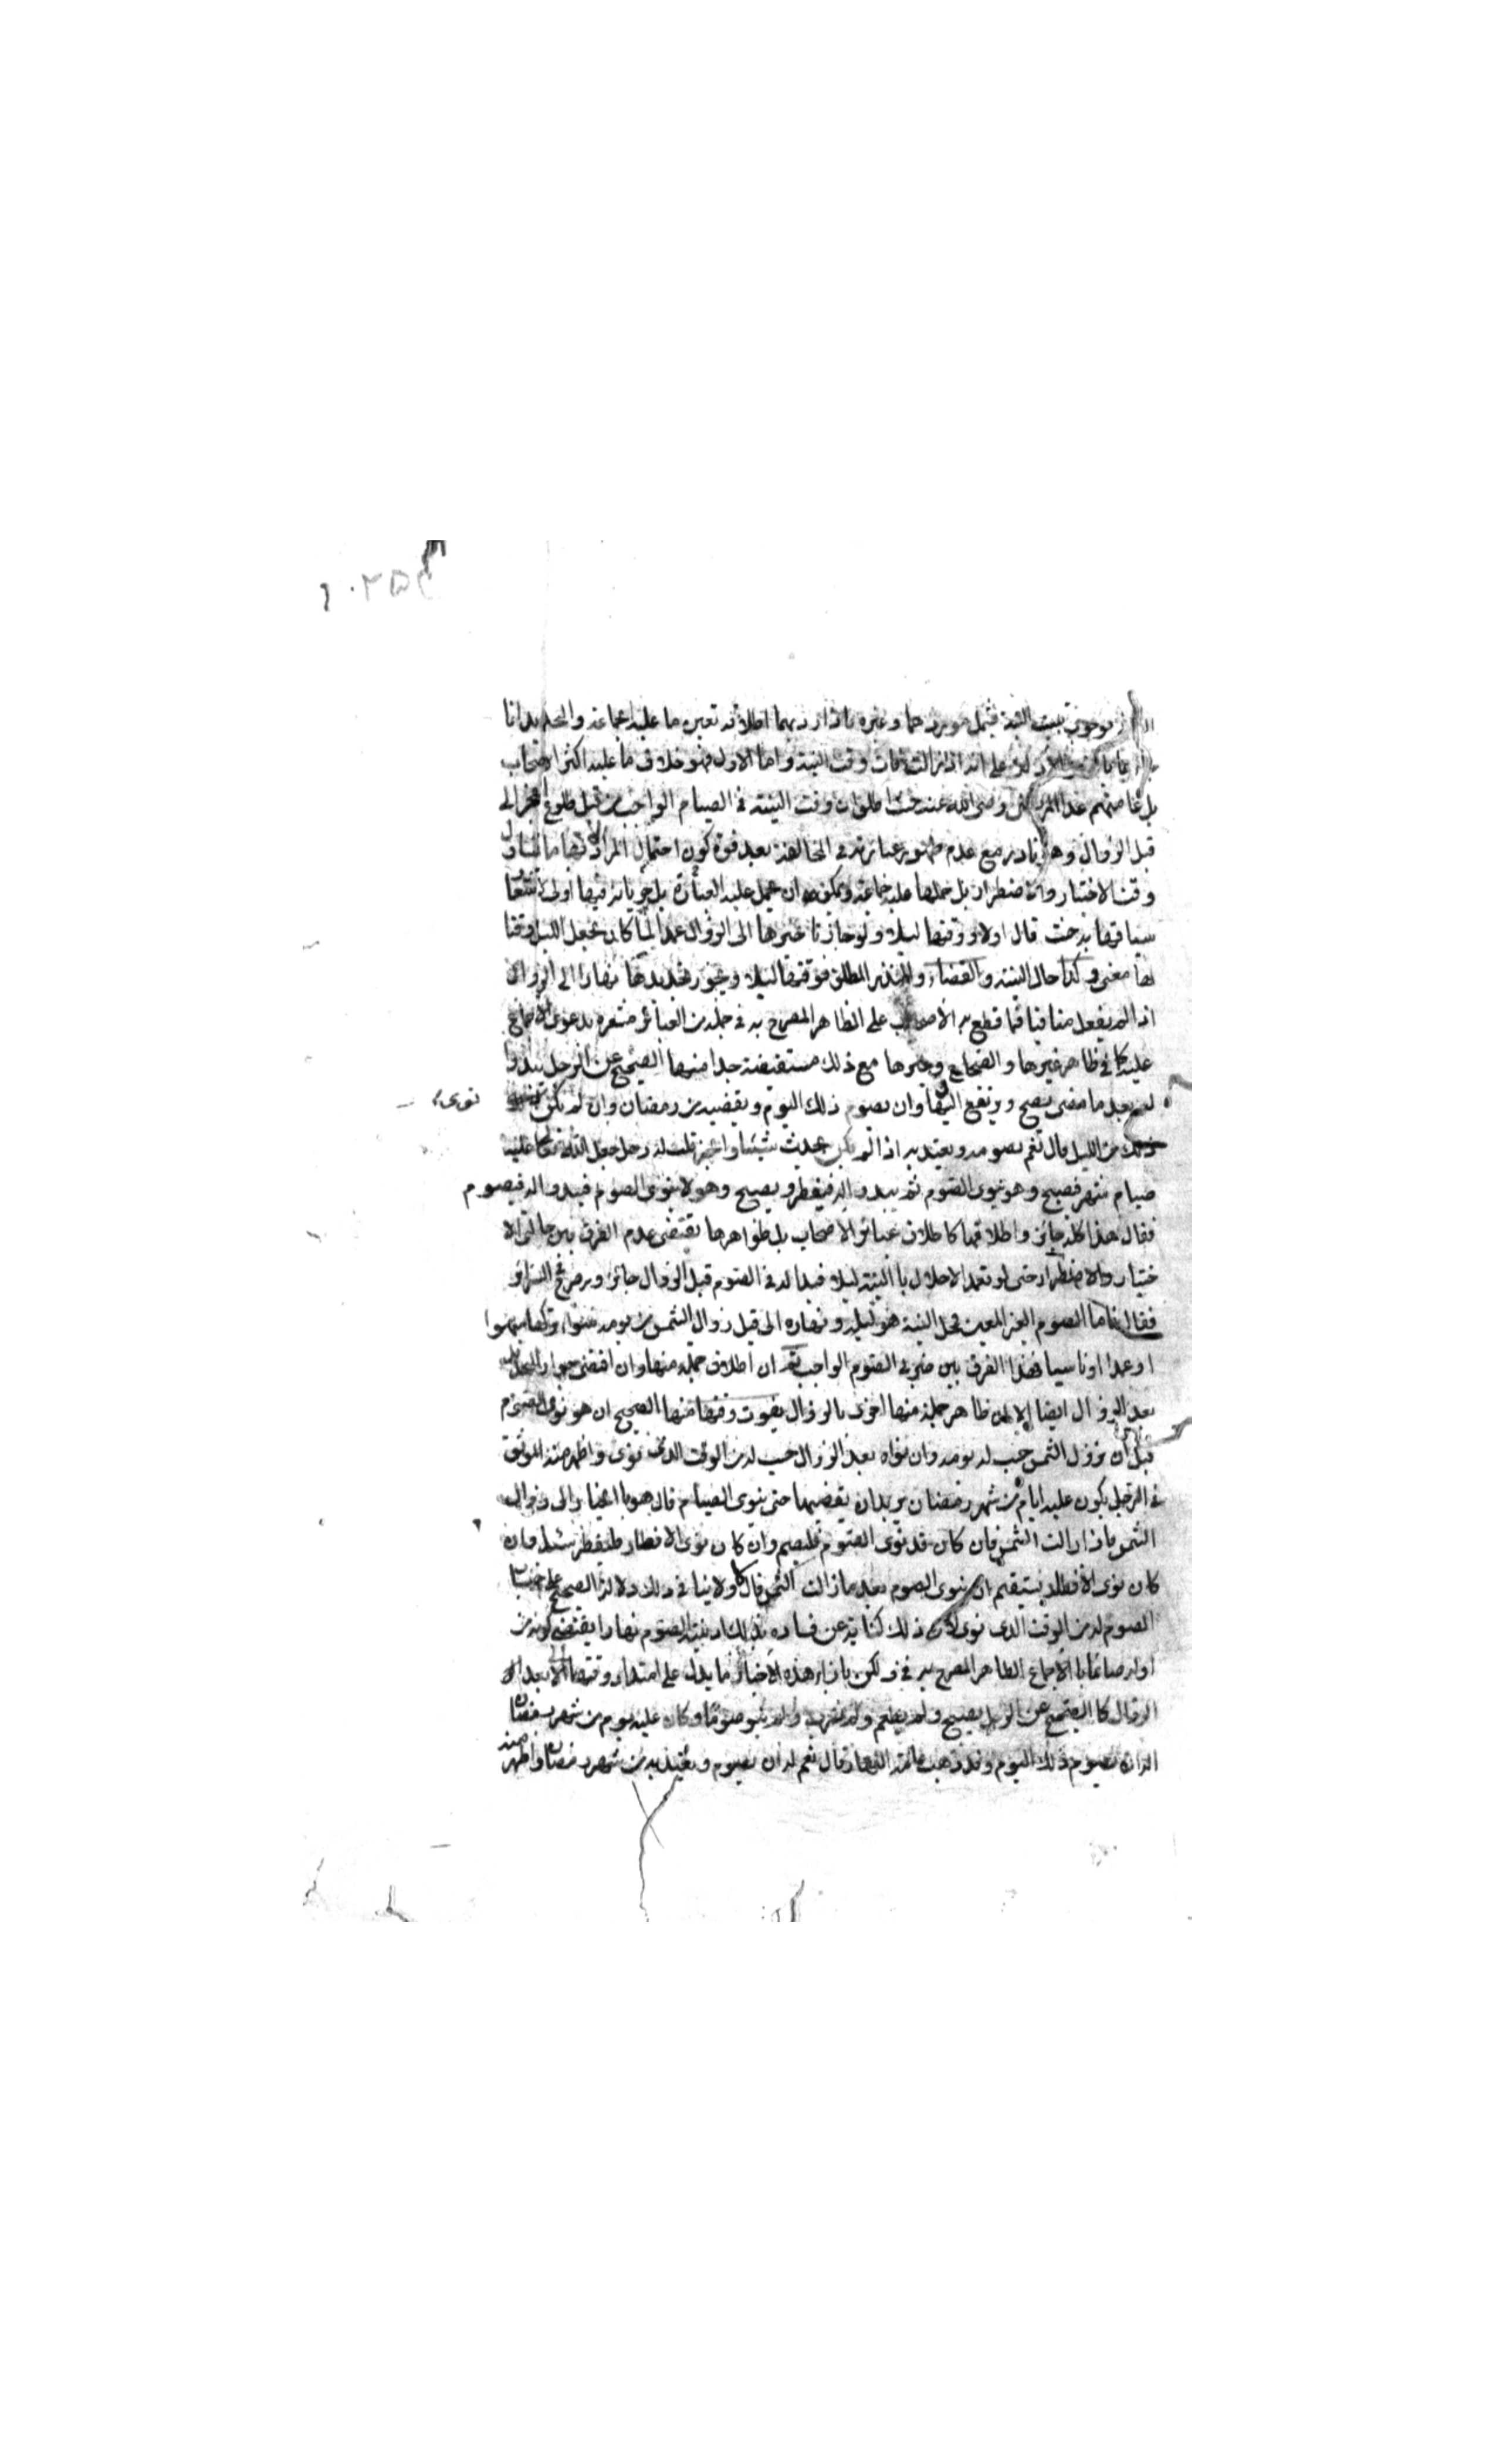 بوجوب تبييت النية فيشمل موردهما وغيره فاذا اريد بهما اطلاقه تعين ما عليه الجماعة
على انه اذا زالت فات وقت النية واما الاول فهو خلاف ما عليه اكثر الاصحاب
بل عامتهم عدا المرتضى رضى الله عنه حيث اطلق ان وقت النية فى الصيام الواجب من قبل طلوع الفجر الى
قبل الزوال وهو نادر مع عدم ظهور عبارته فى المخالفة بعد قوة كون احتمال المراد
وقت الاختيار والاضطرار بل حملها عليه جماعة ويمكن ان يحمل عليه العبارة بل جريانه فيها اولى
سياقها به حيث قال اولا ووقتها ليلا ولو جاز تاخيرها الى الزوال عمدا لما كان لجعل الليل وقتا
لها معنى وكذا حال النية والقضاء والنذر المطلق فوقتها ليلا ويجوز تجديدها نهارا الى الزوال
اذا لم يفعل منافيا قطع به الاصحاب على الظاهر المصرح به فى جملة من العبائر مشعرة بدعوى الاجماع
عليه كما فى ظاهر غيرها والصحاح وغيرها مع ذلك مستفيضة جدا منها الصحيح عن الرجل يبدوا
له بعد ما يصبح ويرتفع النهار ان يصوم ذلك اليوم ويقضيه من رمضان وان لم يكن نوى
ذلك من الليل قال نعم يصومه ويعتد به اذا لم يكن يحدث شيئا واخر قلت له رجل جعل الله عليه
صيام شهر فيصبح وهو ينوى الصوم ثم يبدو له فيفطر ويصبح وهو لا ينوى الصوم فيبدو له فيصوم
فقال هذا كله جائز واطلاقها كاطلاق عبائر الاصحاب بل ظواهرها يقتضى عدم الفرق بين حالتى الا
ختيار والاضطرار حتى لو تعمد الاخلال با النية ليلا فبدا له فى الصوم قبل الزوال جائز وبه صرح
فقال فاما الصوم الغير المعين فمحل النية هو ليله ونهاره الى قبل زوال الشمس من يومه سواء تركها سهوا
او عمدا او ناسيا فهذا الفرق بين ضربى الصوم الواجب ثم ان اطلاق جملة منها وان اقتضى جواز
بعد الزوال ايضا الا ان ظاهر جملة منها اخرى بالزوال يفوت وقتها منها الصحيح ان هو نوى الصوم
قبل ان تزول الشمس حسب له يومه وان نواه بعد الزوال حسب له من الوقت الذى نوى واظهر منه الموثق
فى الرجل يكون عليه ايام من شهر رمضان يريد ان يقضيها حتى ينوى الصيام قال هو بالخيار الى زوال
الشمس فاذا زالت الشمس فان كان قد نوى الصوم فليصم وان كان نوى الافطار فليفطر سئل فان
كان نوى الافطار يستقيم ان ينوى الصوم بعد ما زالت الشمس قال لا ولا ينافى ذلك دلالة الصحيح على حساب
الصوم له من الوقت الذى نوى لان ذلك كناية عن فساده بذلك اذ نية الصوم نهارا يقتضى كونه من
اوله صائما بالاجماع الظاهر المصرح به فى ولكن بازاء هذه الاخبار ما يدل على امتداد وقتها الى بعد
الزوال كا الصحيح عن الرجل يصبح ولم يطعم ولم يشرب ولم ينو صوما وكان عليه يوم من شهر رمضان
اله ان يصوم ذلك اليوم وقد ذهب عامة النهار قال نعم له ان يصوم ويعتد به من شهر رمضان واظهر منه